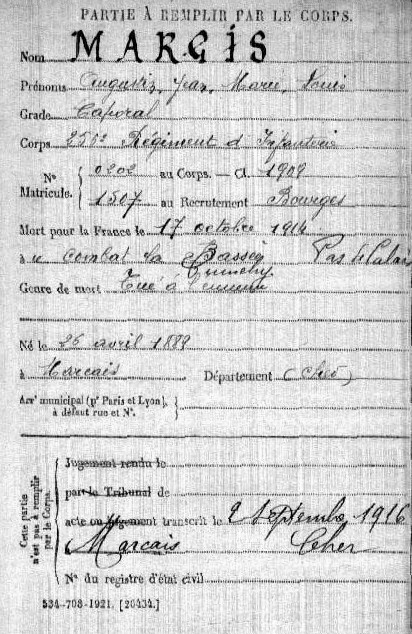 PARTIE À REMPLIR PAR LE CORPS.
Nom MARGIS
Prénoms Jean, Marie, Louis
Grade Caporal
Corps 250e Régiment d Infanterie
No Matricule. { 0202 au Corps. — Cl. 1909
1507 au Recrutement Bourges
Mort pour la France le 17 octobre 1914
à combat La Bassée Pas de Calais
Cuinchy
Genre de mort Tué à l'ennemi
Né le 26 avril 1889
à Marcais Département (Cher)
Arrt municipal (pr Paris et Lyon),
à défaut rue et N°.
Cette partie
n'est pas à remplir
par le Corps.
Jugement rendu le
par le Tribunal de
acte ou jugement transcrit le 2 Septembre 1916
Marcais Cher
N° du registre d'état civil
534-708-1921. [26434.]